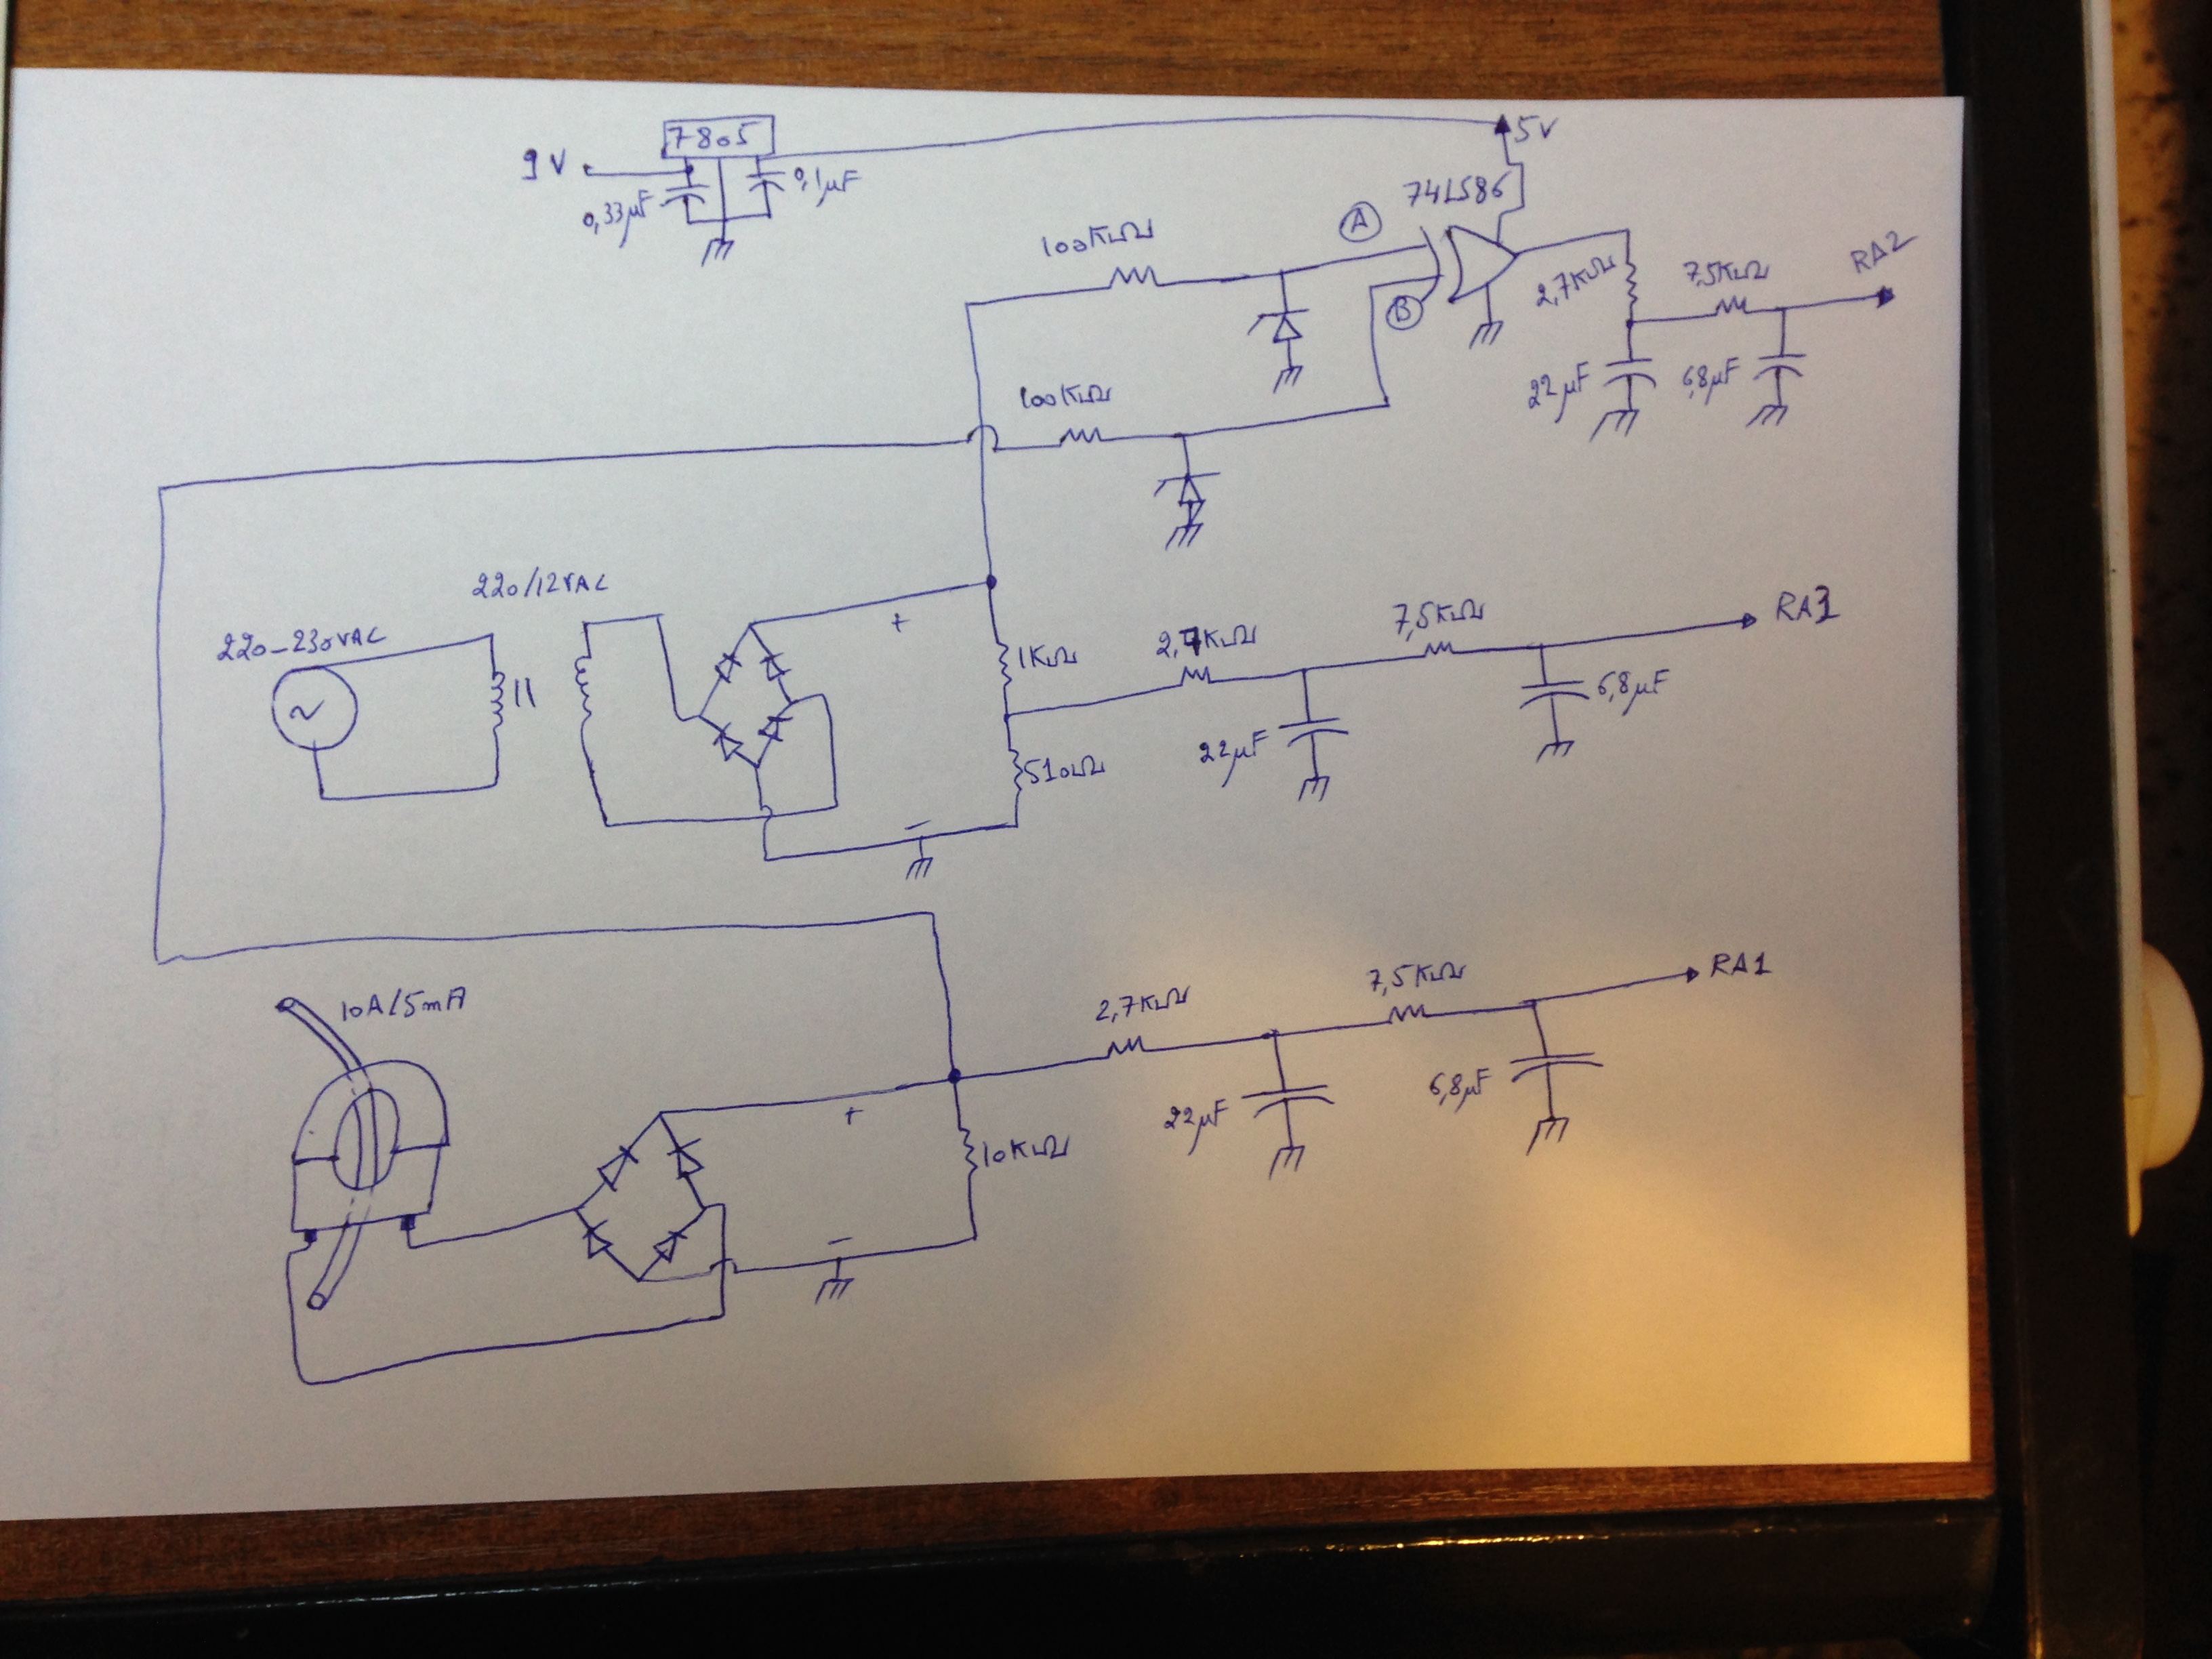 7805
9V
0,33µF
0,1µF
5V
74LS86
100KΩ
A
B
2,7KΩ
7,5KΩ
RA2
22µF
6,8µF
100KΩ
220/12VAC
220-230VAC
~
+
1KΩ
2,7KΩ
7,5KΩ
RA3
22µF
6,8µF
510Ω
-
10A/5mA
+
2,7KΩ
7,5KΩ
RA1
22µF
6,8µF
10KΩ
-